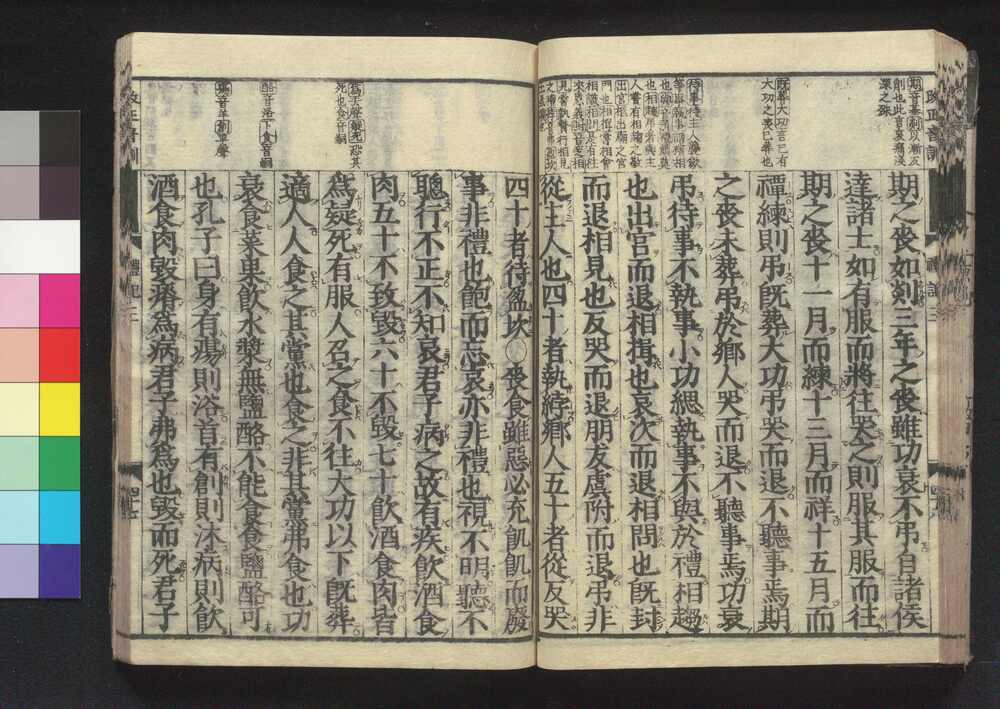 期之喪如剡三年之喪雖功衰不弔自諸侯
達諸士如有服而將往哭之則服其服而往
期之喪十一月而練十三月而祥十五月而
禫練則弔既葬大功弔哭而退不聽事焉期
之喪未葬弔於鄉人哭而退不聽事焉功衰
弔待事不執事小功緦執事不與於禮相趨
也出宮而退相揖也哀次而退相問也既封
而退相見也反哭而退朋友虞附而退弔非
從主人也四十者執綍鄉人五十者從反哭
四十者待盈坎○喪食雖惡必充飢飢而廢
事非禮也飽而忘哀亦非禮也視不明聽不
聰行不正不知哀君子病之故有疾飲酒食
肉五十不致毀六十不毀七十飲酒食肉皆
爲疑死有服人召之食不往大功以下既葬
適人人食之其黨也食之非其黨弗食也功
衰食菜果飲水漿無鹽酪不能食食鹽酪可
也孔子曰身有瘍則浴首有創則沐病則飲
酒食肉毀瘠爲病君子弗爲也毀而死君子
既葬大功言已有
大功之喪已葬也
酪音洛下食音嗣
改正音訓
禮記三